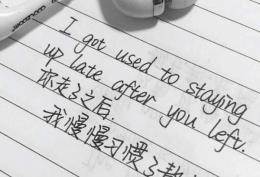 I got used to staying
up late after you left.
你走了之后.
我慢慢习惯了